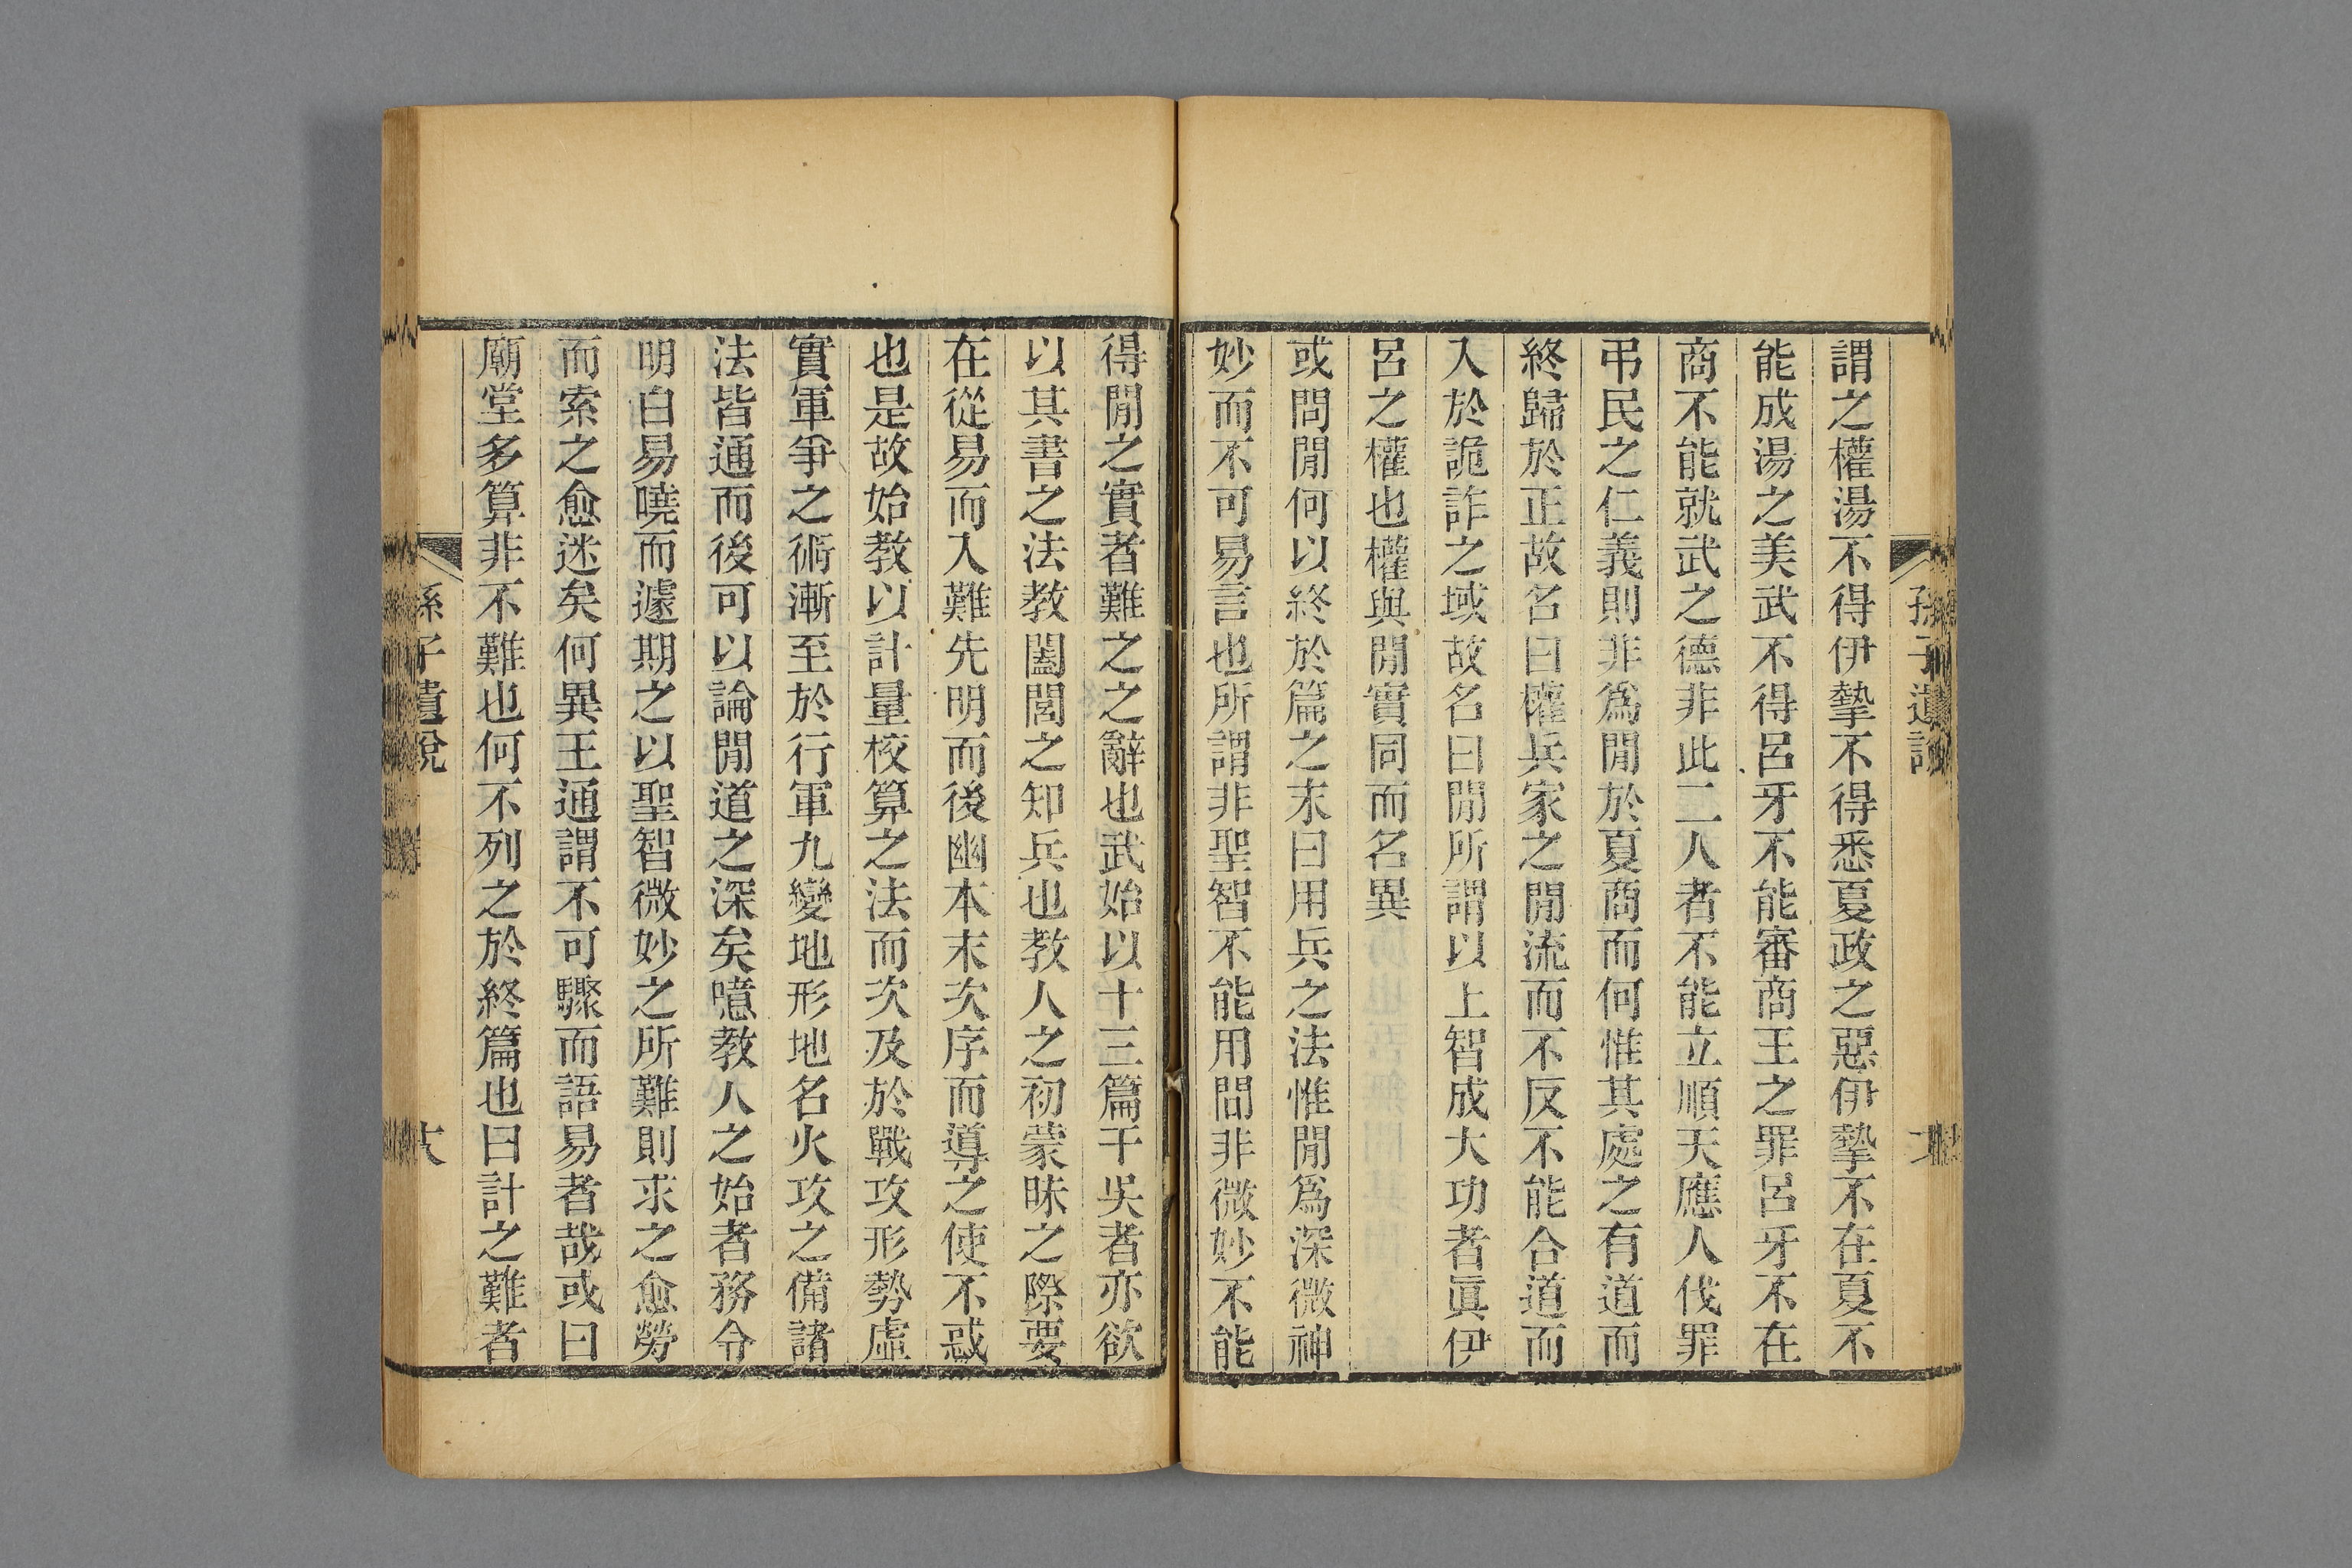 謂之權湯不得伊摯不得悉夏政之惡伊摯不在夏不
能成湯之美武不得呂牙不能審商王之罪呂牙不在
商不能就武之德非此二人者不能立順天應人伐罪
弔民之仁義則非爲閒於夏商而何惟其處之有道而
終歸於正故名曰權兵家之閒流而不反不能合道而
入於詭詐之域故名曰閒所謂以上智成大功者眞伊
呂之權也權與閒實同而名異
或問閒何以終於篇之末曰用兵之法惟閒爲深微神
妙而不可易言也所謂非聖智不能用間非微妙不能
得閒之實者難之之辭也武始以十三篇干吳者亦欲
以其書之法教闔閭之知兵也教人之初蒙昧之際要
在從易而入難先明而後幽本末次序而導之使不惑
也是故始教以計量校算之法而次及於戰攻形勢虛
實軍爭之術漸至於行軍九變地形地名火攻之備諸
法皆通而後可以論閒道之深矣噫教人之始者務令
明白易曉而遽期之以聖智微妙之所難則求之愈勞
而索之愈迷矣何異王通謂不可驟而語易者哉或曰
廟堂多算非不難也何不列之於終篇也曰計之難者
孫子遺說